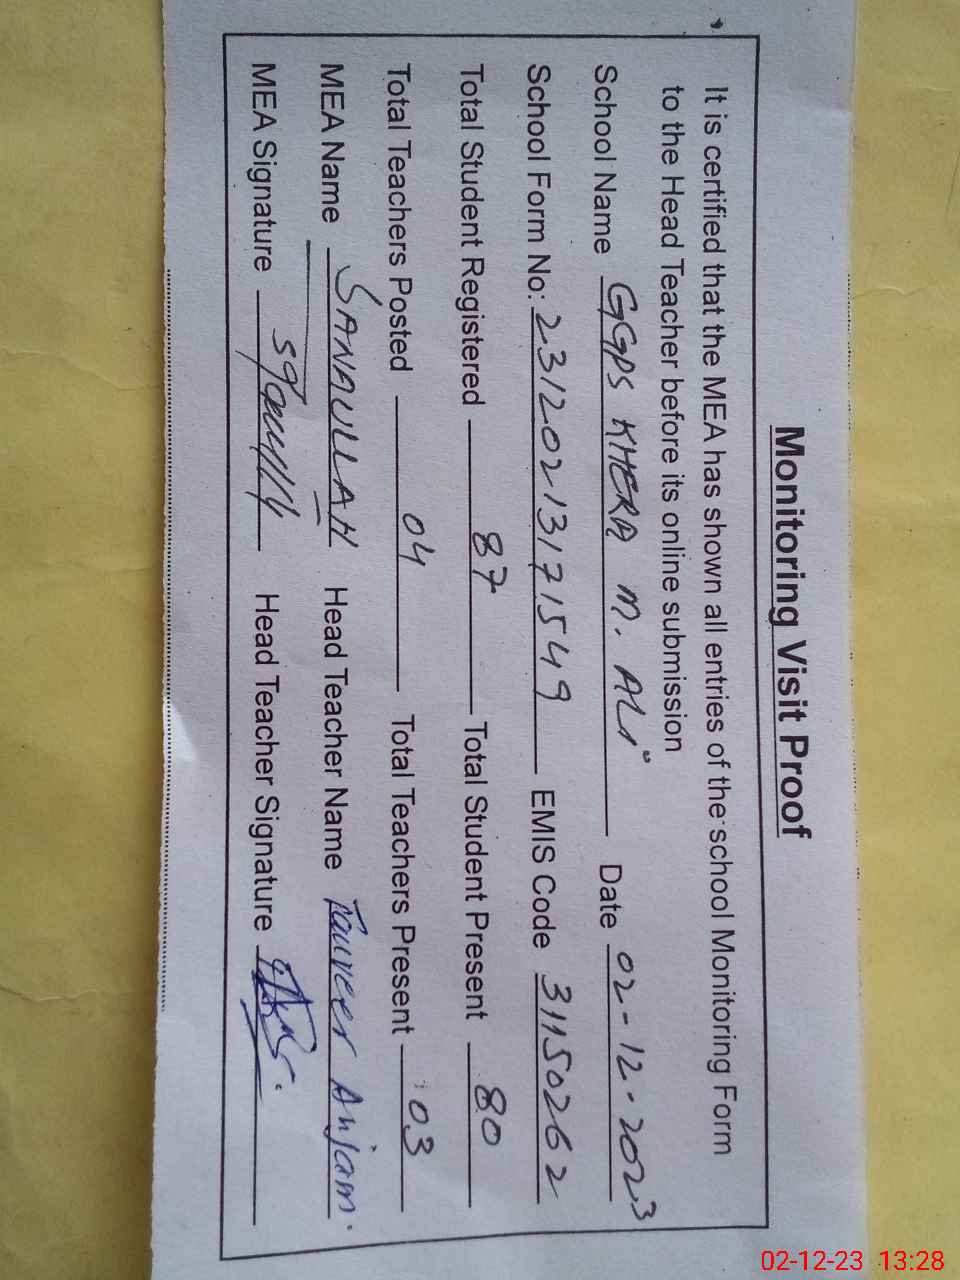 Monitoring Visit Proof
It is certified that the MEA has shown all entries of the school Monitoring Form
to the Head Teacher before its online submission
School Name GGPS KHERA M. ALI Date 02-12-2023
School Form No: 23120213171549 EMIS Code 31150262
Total Student Registered 87 Total Student Present 80
Total Teachers Posted 04 Total Teachers Present 03
MEA Name SANAULLAH Head Teacher Name Tanveer Anjam.
MEA Signature Head Teacher Signature
02-12-23 13:28